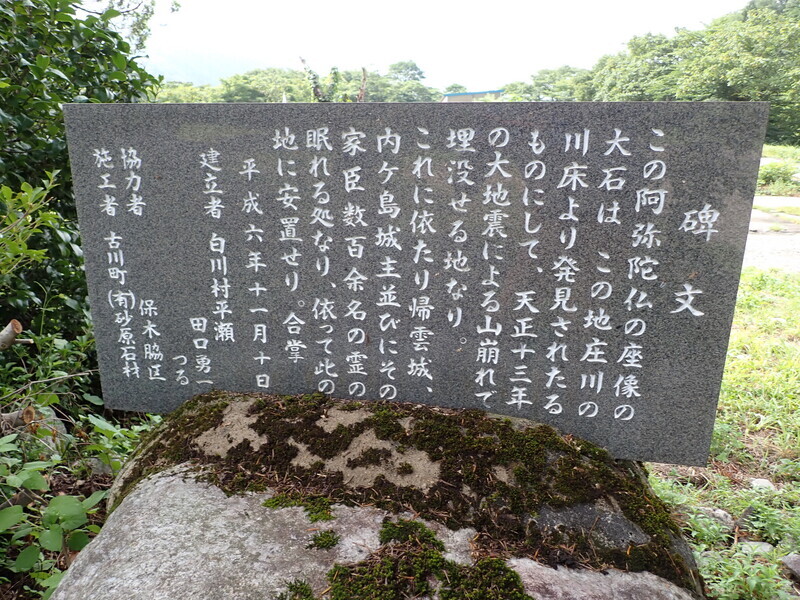 碑文
この阿弥陀仏の座像の
大石は この地庄川の
川床より発見されたる
ものにして、天正十三年
の大地震による山崩れで
埋没せる地なり。
これに依たり帰雲城、
内ケ島城主並びにその
家臣数百余名の霊の
眠れる処なり、依って此の
地に安置せり。合掌
平成六年十一月十日
建立者 白川村平瀬
田口勇一
つる
協力者 保木脇区
施工者 古川町(有)砂原石材